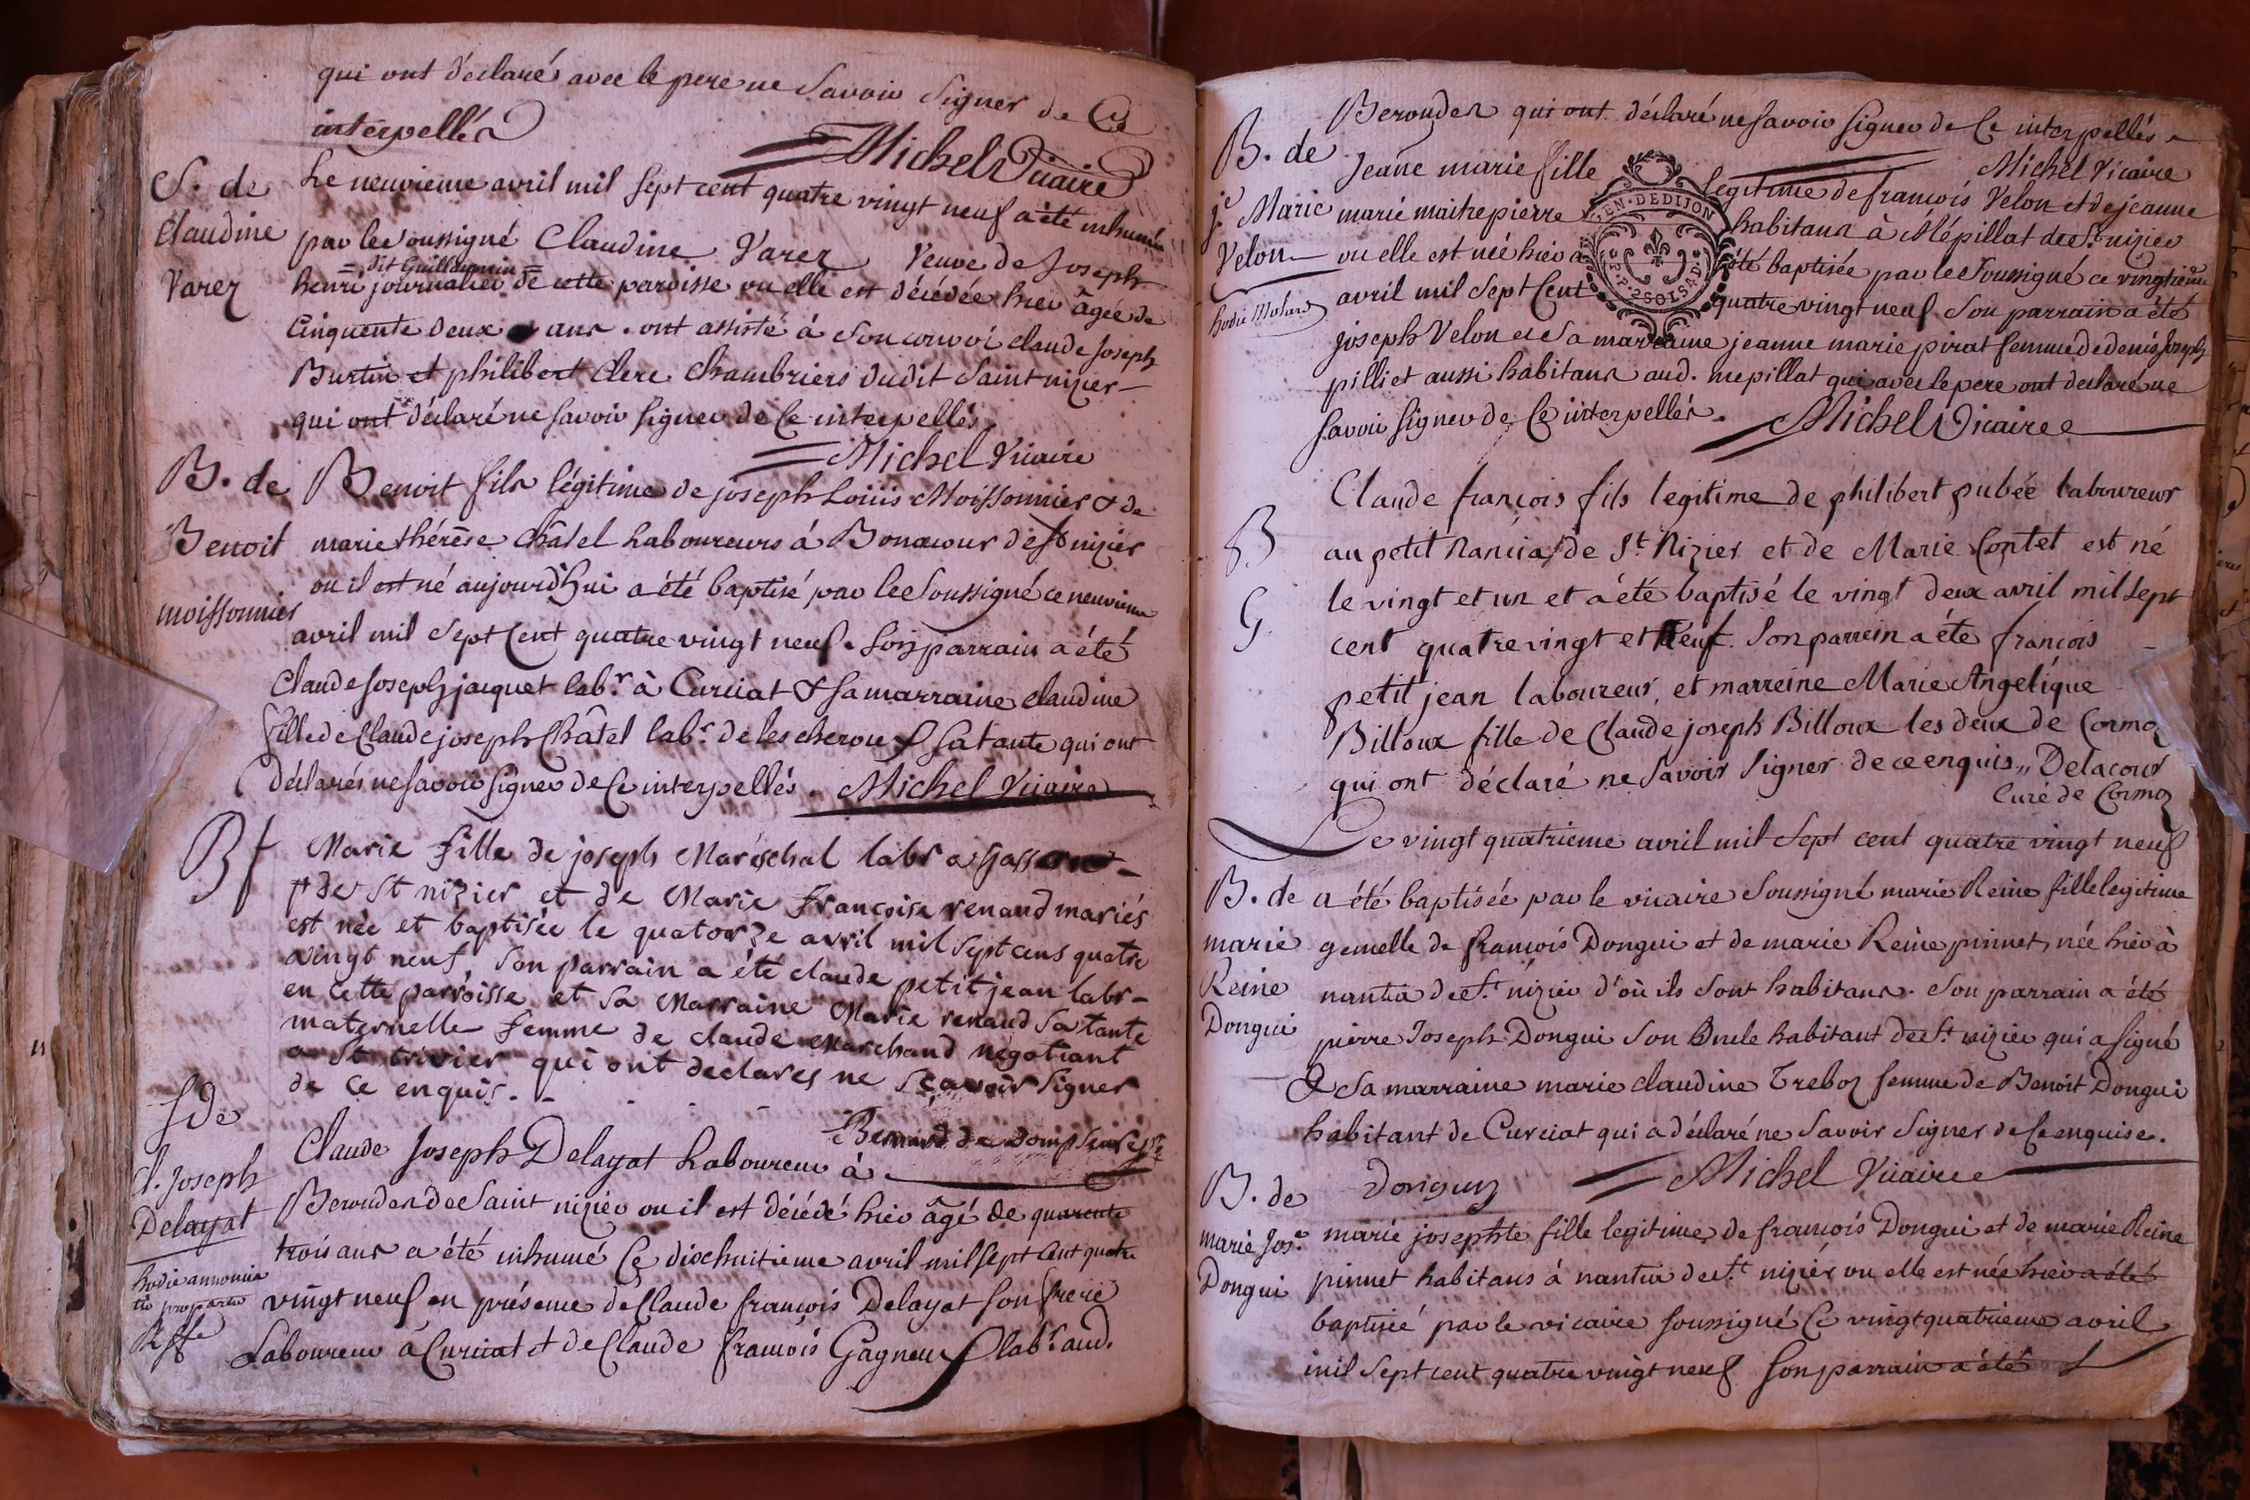 qui ont déclarés avec le pere ne Savoir Signer de Ce
interpellés
Michel Vicaire
S. de
Claudine
Varez
Le neuvieme avril mil Sept cent quatre vingt neuf a été inhumée
par le Soussigné Claudine Varez Veuve de Joseph
= dit Guillaumin =
henri journalier de cette paroisse ou elle est décédée hier âgée de
Cinquente deux ans. ont assisté à Son convoi claude Joseph
Burtin et philibert Clerc Chambriers dudit Saint nizier
qui ont déclaré ne Savoir Signer de Ce interpellés
Michel Vicaire
B. de
Benoit
moissonnier
Benoit fils légitime de joseph Louis Moissonnier & de
marie thérèse Châtel Laboureurs à Bonacour de St nizier
ou il est né aujourd'hui a été baptisé par le Soussigné ce neuvieme
avril mil Sept Cent quatre vingt neuf. Son parrain a été
Claude Joseph jacquet labr. à Curciat & Sa marraine claudine
fille de Claude joseph Châtel labr. de lescheroux Sa tante qui ont
déclarés ne Savoir Signer de Ce interpellés. Michel Vicaire
Bt
Marie fille de joseph Maréschal labr a
pde St nizier et de Marie Françoise renaud mariés
est née et baptisée le quatorze avril mil sept cens quatre
vingt neuf Son parrain a été claude petitjean labr-
en cette parroisse et sa Marraine Marie renaud Sa tante
maternelle femme de claude Marchand négotiant
a St trivier qui ont declarés ne Sçavoir Signer
de ce enquis. - - - -
S de
Cl. Joseph
Delayat
Claude Joseph Delayat Laboureur à
Berouder de Saint nizier ou il est décédé hier âgé de quarente
trois ans a été inhumé Ce dixhuitieme avril mil Sept Cent quatre
vingt neuf en présence de Claude françois Delayat Son frere
Laboureur à Curciat & de Claude françois Gagneur labr. aud.
Berouder qui ont déclaré ne Savoir Signer de Ce interpellés
Michel Vicaire
B. de
je Marie
Velon
hodie Molard
GEN. DE DIJON
2 SOLS
Jeane marie fille legitime de françois Velon et de jeanne
marie maitrepierre habitans à Mépillat de St. nizier
ou elle est née hier a été baptisée par le Soussigné ce vingtieme
avril mil Sept Cent quatre vingt neuf Son parrain a été
joseph Velon et Sa marraine jeanne marie pirat femme de denis joseph
pilliet aussi habitans aud. mepillat qui avec le pere ont declaré ne
Savoir Signer de Ce interpellés. Michel Vicaire
B
G
Claude françois fils legitime de philibert pubée laboureur
au petit Nancia de St Nizier et de Marie Contet est né
le vingt et un et a été baptisé le vingt deux avril mil Sept
cent quatrevingt et Neuf. Son parrein a été françois
petit jean laboureur, et marreine Marie Angelique
Billoux fille de Claude joseph Billoux les deux de Cormoz
qui ont déclaré ne Savoir Signer de ce enquis,, Delacour
Curé de Cormoz
Le vingt quatrieme avril mil Sept cent quatre vingt neuf
B. de
marie
Reine
Dongui
a été baptisée par le vicaire Soussigné marie Reine fille legitime
gemelle de françois Dongui et de marie Reine pinnet, née hier à
nantia de St. nizier d'où ils Sont habitans. Son parrain a été
pierre Joseph Dongui Son Oncle habitant de St. nizier qui a Signé
& Sa marraine marie claudine Treboz femme de Benoit Dongui
habitant de Curciat qui a déclaré ne Savoir Signer de Ce enquise.
Donguy Michel Vicaire
B. de
marie Jose.
Dongui
marie josephte fille legitime de françois Dongui et de marie Reine
pinnet habitans à nantia de St. nizier ou elle est née hier a été
baptisée par le vicaire Soussigné Ce vingt quatrieme avril
mil Sept cent quatre vingt neuf Son parrain a été